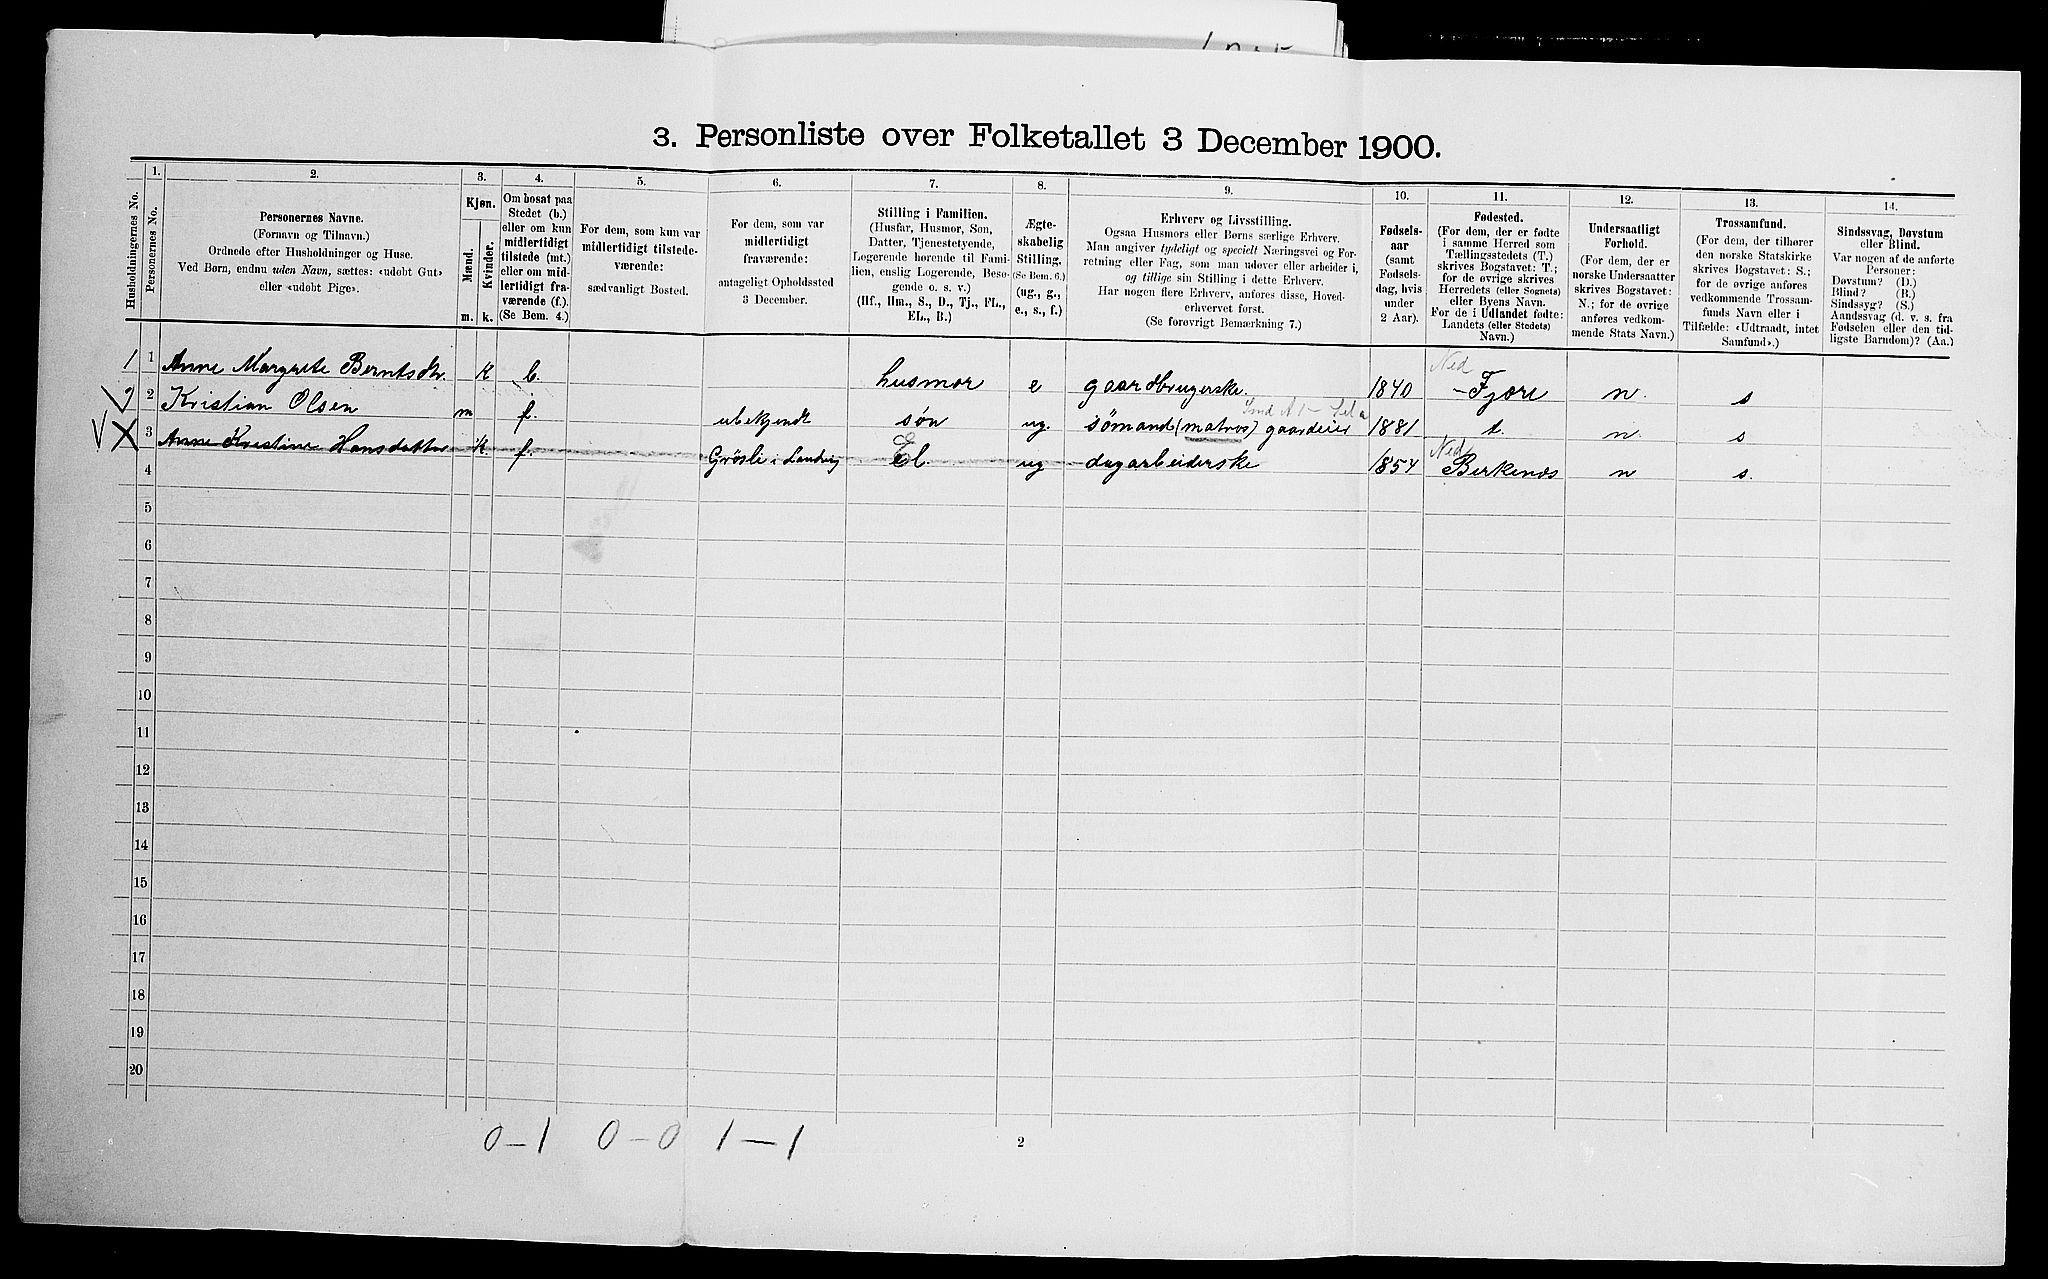 3. Personliste over Folketallet 3 December 1900.
Husholdningernes No.
1.
Personernes No.
2.
Personernes Navne.
(Fornavn og Tilnavn.)
Ordnede efter Husholdninger og Huse.
Ved Børn, endnu uden Navn, sættes: «udøbt Gut»
eller «udøbt Pige».
3.
Kjøn.
Mænd.
Kvinder.
m. k.
4.
Om bosat paa
Stedet (b.)
eller om kun
midlertidigt
tilstede (mt.)
eller om mid-
lertidigt fra-
værende (f.).
(Se Bem. 4.)
5.
For dem, som kun var
midlertidigt tilstede-
værende:
sædvanligt Bosted.
6.
For dem, som var
midlertidigt
fraværende:
antageligt Opholdssted
3 December.
7.
Stilling i Familien.
(Husfar, Husmor, Søn,
Datter, Tjenestetyende,
Logerende hørende til Fami-
lien, enslig Logerende, Besø-
gende o. s. v.)
(Hf., Hm., S., D., Tj., FL.,
EL., B.)
8.
Ægte-
skabelig
Stilling.
(Se Bem. 6.)
(ug., g.,
e., s., f.)
9.
Erhverv og Livsstilling.
Ogsaa Husmors eller Børns særlige Erhverv.
Man angiver tydeligt og specielt Næringsvei og For-
retning eller Fag, som man udøver eller arbeider i,
og tillige sin Stilling i dette Erhverv.
Har nogen flere Erhverv, anføres disse, Hoved-
erhvervet først.
(Se forøvrigt Bemærkning 7.)
10.
Fødsels-
aar
(samt
Fødsels-
dag, hvis
under
2 Aar).
11.
Fødested.
(For dem, der er fødte
i samme Herred som
Tællingsstedets (T.)
skrives Bogstavet: T.;
for de øvrige skrives
Herredets (eller Sognets)
eller Byens Navn.
For de i Udlandet fødte:
Landets (eller Stedets)
Navn.)
12.
Undersaatligt
Forhold.
(For dem, der er
norske Undersaatter
skrives Bogstavet:
N.; for de øvrige
anføres vedkom-
mende Stats Navn.)
13.
Trossamfund.
(For dem, der tilhører
den norske Statskirke
skrives Bogstavet: S.;
for de øvrige anføres
vedkommende Trossam-
funds Navn eller i
Tilfælde: «Udtraadt, intet
Samfund».)
14.
Sindssvag, Døvstum
eller Blind.
Var nogen af de anførte
Personer:
Døvstum? (D.)
Blind? (B.)
Sindssyg? (S.)
Aandssvag (d. v. s. fra
Fødselen eller den tid-
ligste Barndom)? (Aa.)
1 1 Anne Margrete Berntsdtr. k b. husmor e gaardbrugerske. 1840 Ned Fjære n. s
2 Kristian Olsen m f. ubekjendt søn ug. sømand (matros) gaardeier 1881 t. n. s
X 3 Anne Kristine Hansdatter k f. Grøsle i Landvig El. ug dagarbeiderske 1854 Ned Birkenæs n s.
4
5
6
7
8
9
10
11
12
13
14
15
16
17
18
19
20
0-1 0-0 1-1
2